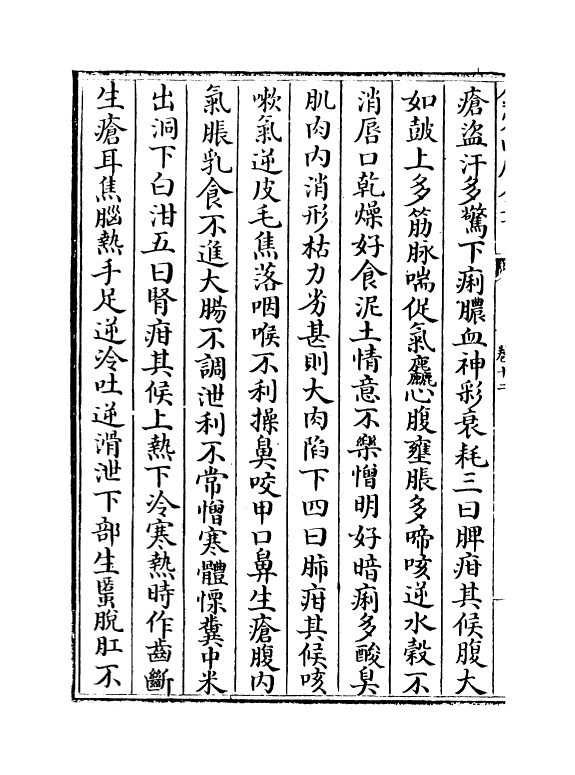 瘡盜汗多驚下痢膿血神彩衰耗三曰脾疳其候腹大
如皷上多筋脉喘促氣麤心腹壅脹多啼咳逆水糓不
消唇口乾燥好食泥土情意不樂憎明好暗痢多酸臭
肌肉内消形枯力劣甚則大肉陷下四曰肺疳其候咳
嗽氣逆皮毛焦落咽喉不利操鼻咬甲口鼻生瘡腹内
氣脹乳食不進大腸不調泄利不常憎寒體慄糞中米
出洞下白泔五曰腎疳其候上熱下冷寒熱時作齒斷
生瘡耳焦腦熱手足逆冷吐逆滑泄下部生䘌脫肛不